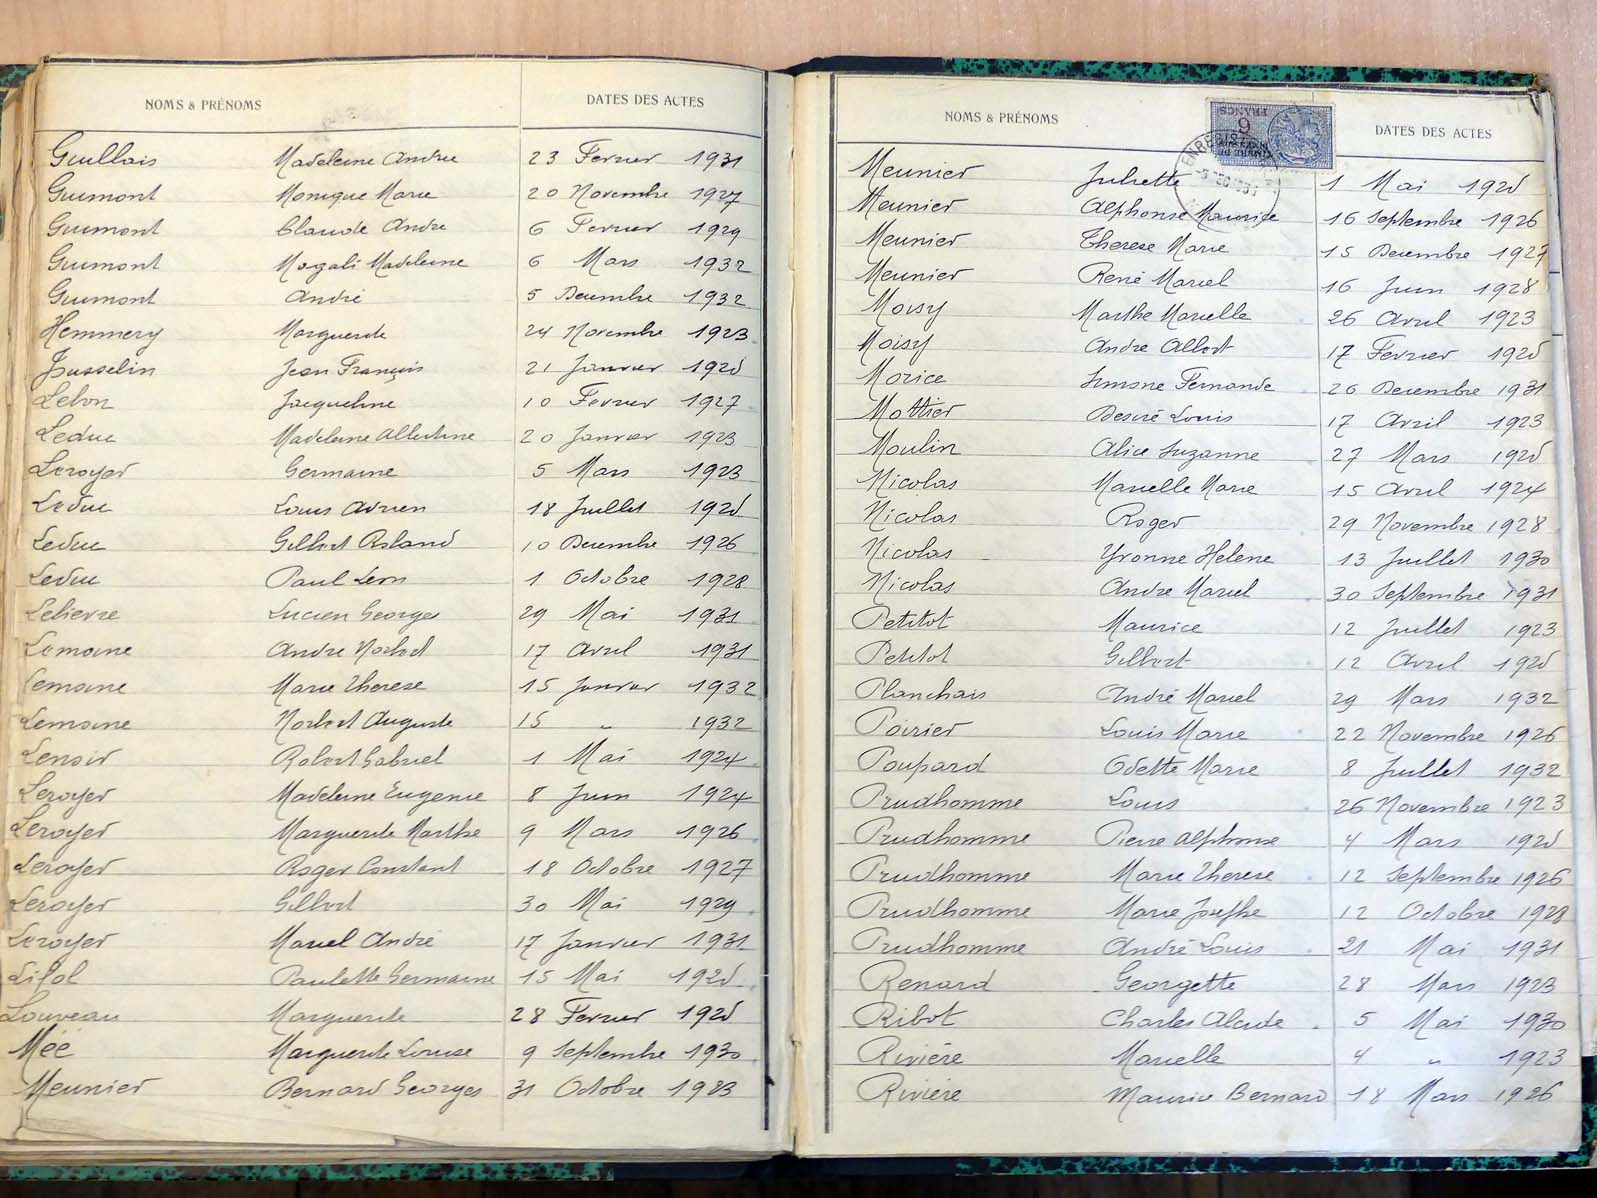 NOMS & PRÉNOMS DATES DES ACTES
Guillais Madeleine Andrée 23 Fevrier 1931
Guimont Monique Marie 20 Novembre 1927
Guimont Claude Andre 6 Fevrier 1929
Guimont Magali Madeleine 6 Mars 1932
Guimont André 5 Decembre 1932
Hemmery Marguerite 24 Novembre 1923
Jusselin Jean François 21 Janvier 1925
Lebon Jacqueline 10 Fevrier 1927
Leduc Madeleine Albertine 20 Janvier 1923
Leroyer Germaine 5 Mars 1923
Leduc Louis Adrien 18 Juillet 1925
Leduc Gilbert Roland 10 Decembre 1926
Leduc Paul Leon 1 Octobre 1928
Lelievre Lucien Georges 29 Mai 1931
Lemoine Andre Norbert 17 Avril 1931
Lemoine Marie Therese 15 Janvier 1932
Lemoine Norbert Auguste 15 " 1932
Lenoir Robert Gabriel 1 Mai 1924
Leroyer Madeleine Eugenie 8 Juin 1924
Leroyer Marguerite Marthe 9 Mars 1926
Leroyer Roger Constant 18 Octobre 1927
Leroyer Gilbert 30 Mai 1929
Leroyer Marcel André 17 Janvier 1931
Paulette Germaine 15 Mai 1925
Louveau Marguerite 28 Fevrier 1925
Mée Marguerite Louise 9 Septembre 1930
Meunier Bernard Georges 31 Octobre 1923
NOMS & PRÉNOMS DATES DES ACTES
6 FRANCS
Meunier Juliette 1 Mai 1925
Meunier Alphonse Maurice 16 Septembre 1926
Meunier Therese Marie 15 Decembre 1927
Meunier René Marcel 16 Juin 1928
Moisy Marthe Marcelle 26 Avril 1923
Moisy Andre Albert 17 Fevrier 1925
Morice Simone Fernande 26 Decembre 1931
Mottier Desiré Louis 17 Avril 1923
Moulin Alice Suzanne 27 Mars 1925
Nicolas Marcelle Marie 15 Avril 1924
Nicolas Roger 29 Novembre 1928
Nicolas Yvonne Helene 13 Juillet 1930
Nicolas Andre Marcel 30 Septembre 1931
Petitot Maurice 12 Juillet 1923
Petitot Gilbert 12 Avril 1925
Planchais André Marcel 29 Mars 1932
Poirier Louis Marie 22 Novembre 1926
Poupard Odette Marie 8 Juillet 1932
Prudhomme Louis 26 Novembre 1923
Prudhomme Pierre Alphonse 4 Mars 1925
Prudhomme Marie Therese 12 Septembre 1926
Prudhomme Marie Josephe 12 Octobre 1928
Prudhomme André Louis 21 Mai 1931
Renard Georgette 28 Mars 1923
Ribot Charles Alcide 5 Mai 1930
Rivière Marcelle 4 " 1923
Rivière Maurice Bernard 18 Mars 1926